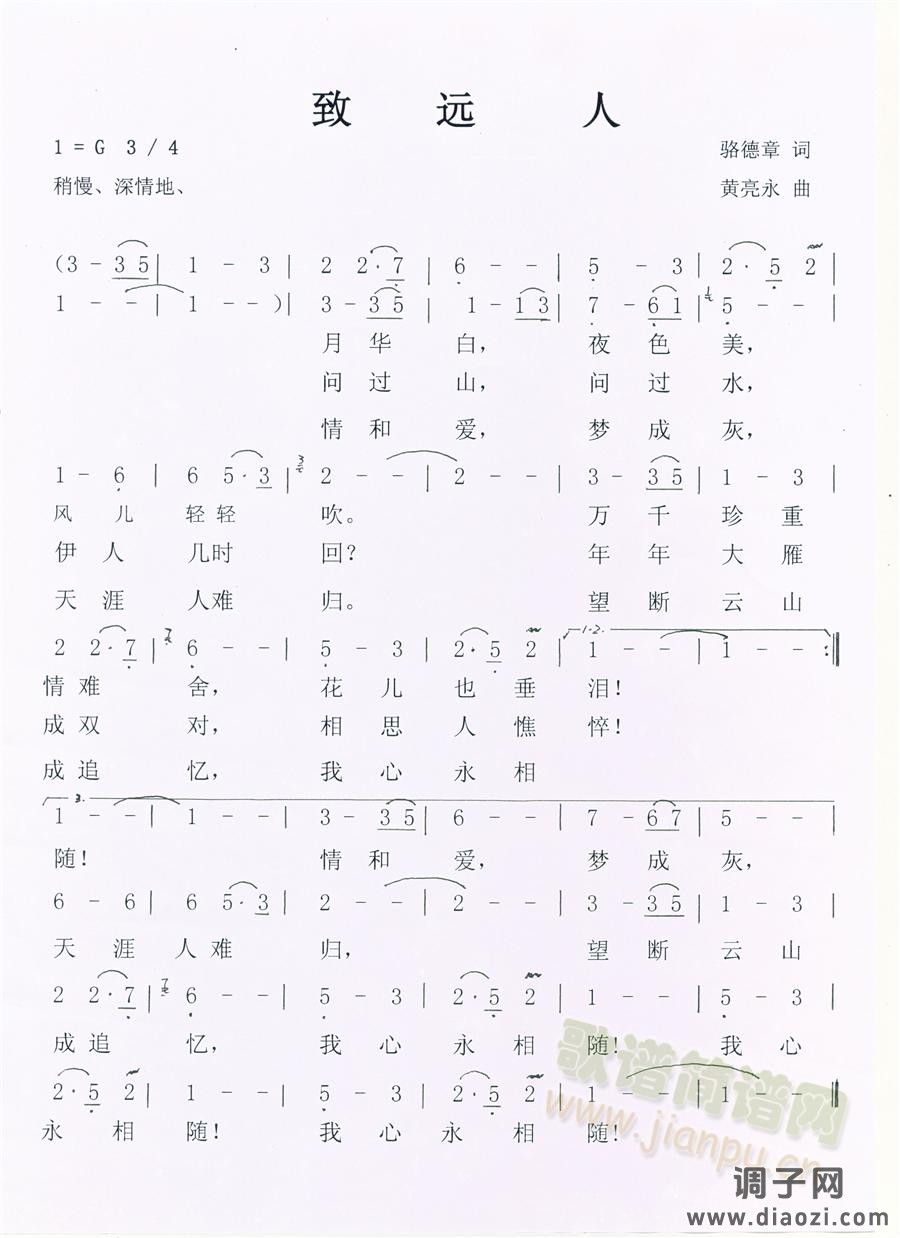 致 远 人
1 = G 3 / 4
骆德章 词
稍慢、深情地、
黄亮永 曲
(3 - 3 5 | 1 - 3 | 2 2 · 7 | 6 - - | 5 - 3 | 2 · 5 2
1 - - | 1 - - ) | 3 - 3 5 | 1 - 1 3 | 7 - 6 1 | 5 - -
月 华 白, 夜 色 美,
问 过 山, 问 过 水,
情 和 爱, 梦 成 灰,
1 - 6 | 6 5 · 3 | 3 2 - - | 2 - - | 3 - 3 5 | 1 - 3 |
风 儿 轻 轻 吹。 万 千 珍 重
伊 人 几时 回? 年 年 大 雁
天 涯 人难 归。 望 断 云 山
2 2 · 7 | 7 6 - - | 5 - 3 | 2 · 5 2 | 1 - - | 1 - - :‖
1.2.
情 难 舍, 花 儿 也 垂 泪!
成 双 对, 相 思 人 憔 悴!
成 追 忆, 我 心 永 相
3.
1 - - | 1 - - | 3 - 3 5 | 6 - - | 7 - 6 7 | 5 - - |
随! 情 和 爱, 梦 成 灰,
6 - 6 | 6 5 · 3 | 2 - - | 2 - - | 3 - 3 5 | 1 - 3 |
天 涯 人 难 归, 望 断 云 山
2 2 · 7 | 7 6 - - | 5 - 3 | 2 · 5 2 | 1 - - | 5 - 3
成 追 忆, 我 心 永 相 随! 我 心
2 · 5 2 | 1 - - | 5 - 3 | 2 · 5 2 | 1 - - | 1 - - ‖
永 相 随! 我 心 永 相 随!
歌谱简谱网
www.jianpu.cn
调子网
www.diaozi.com